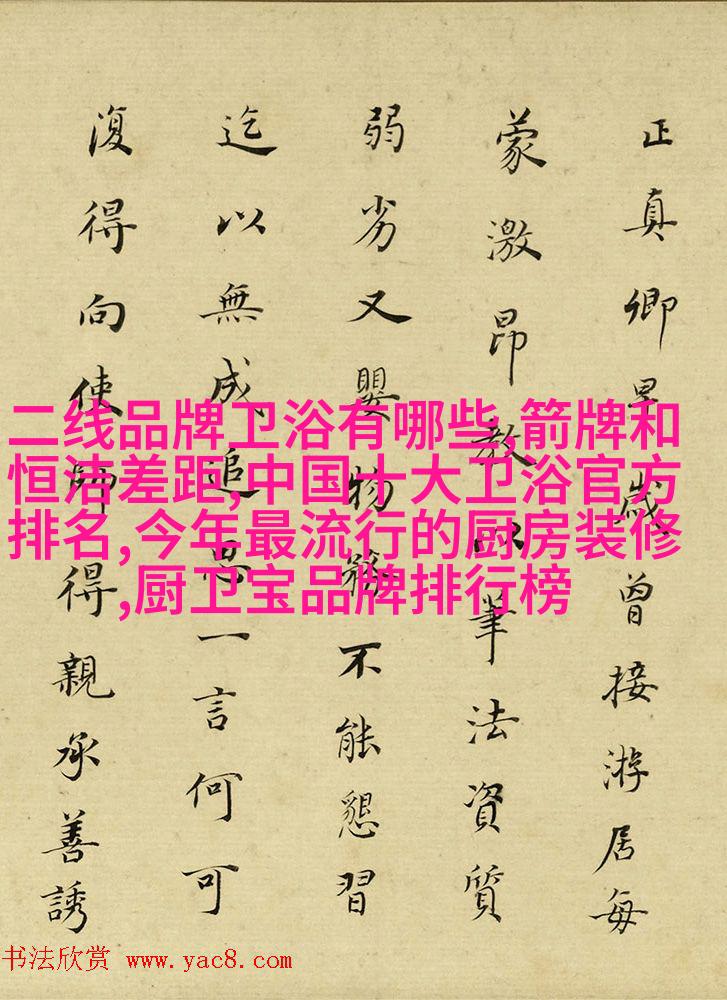 正真卿早歲曾接游居每
蒙激昂教以筆法資質
弱劣又嬰物務不能懇習
迄以無成追思一言何可
復得向使師得親承善誘
二线品牌卫浴有哪些,箭牌和
恒洁差距,中国十大卫浴官方
排名,今年最流行的厨房装修
,厨卫宝品牌排行榜
书法欣赏 www.yac8.com